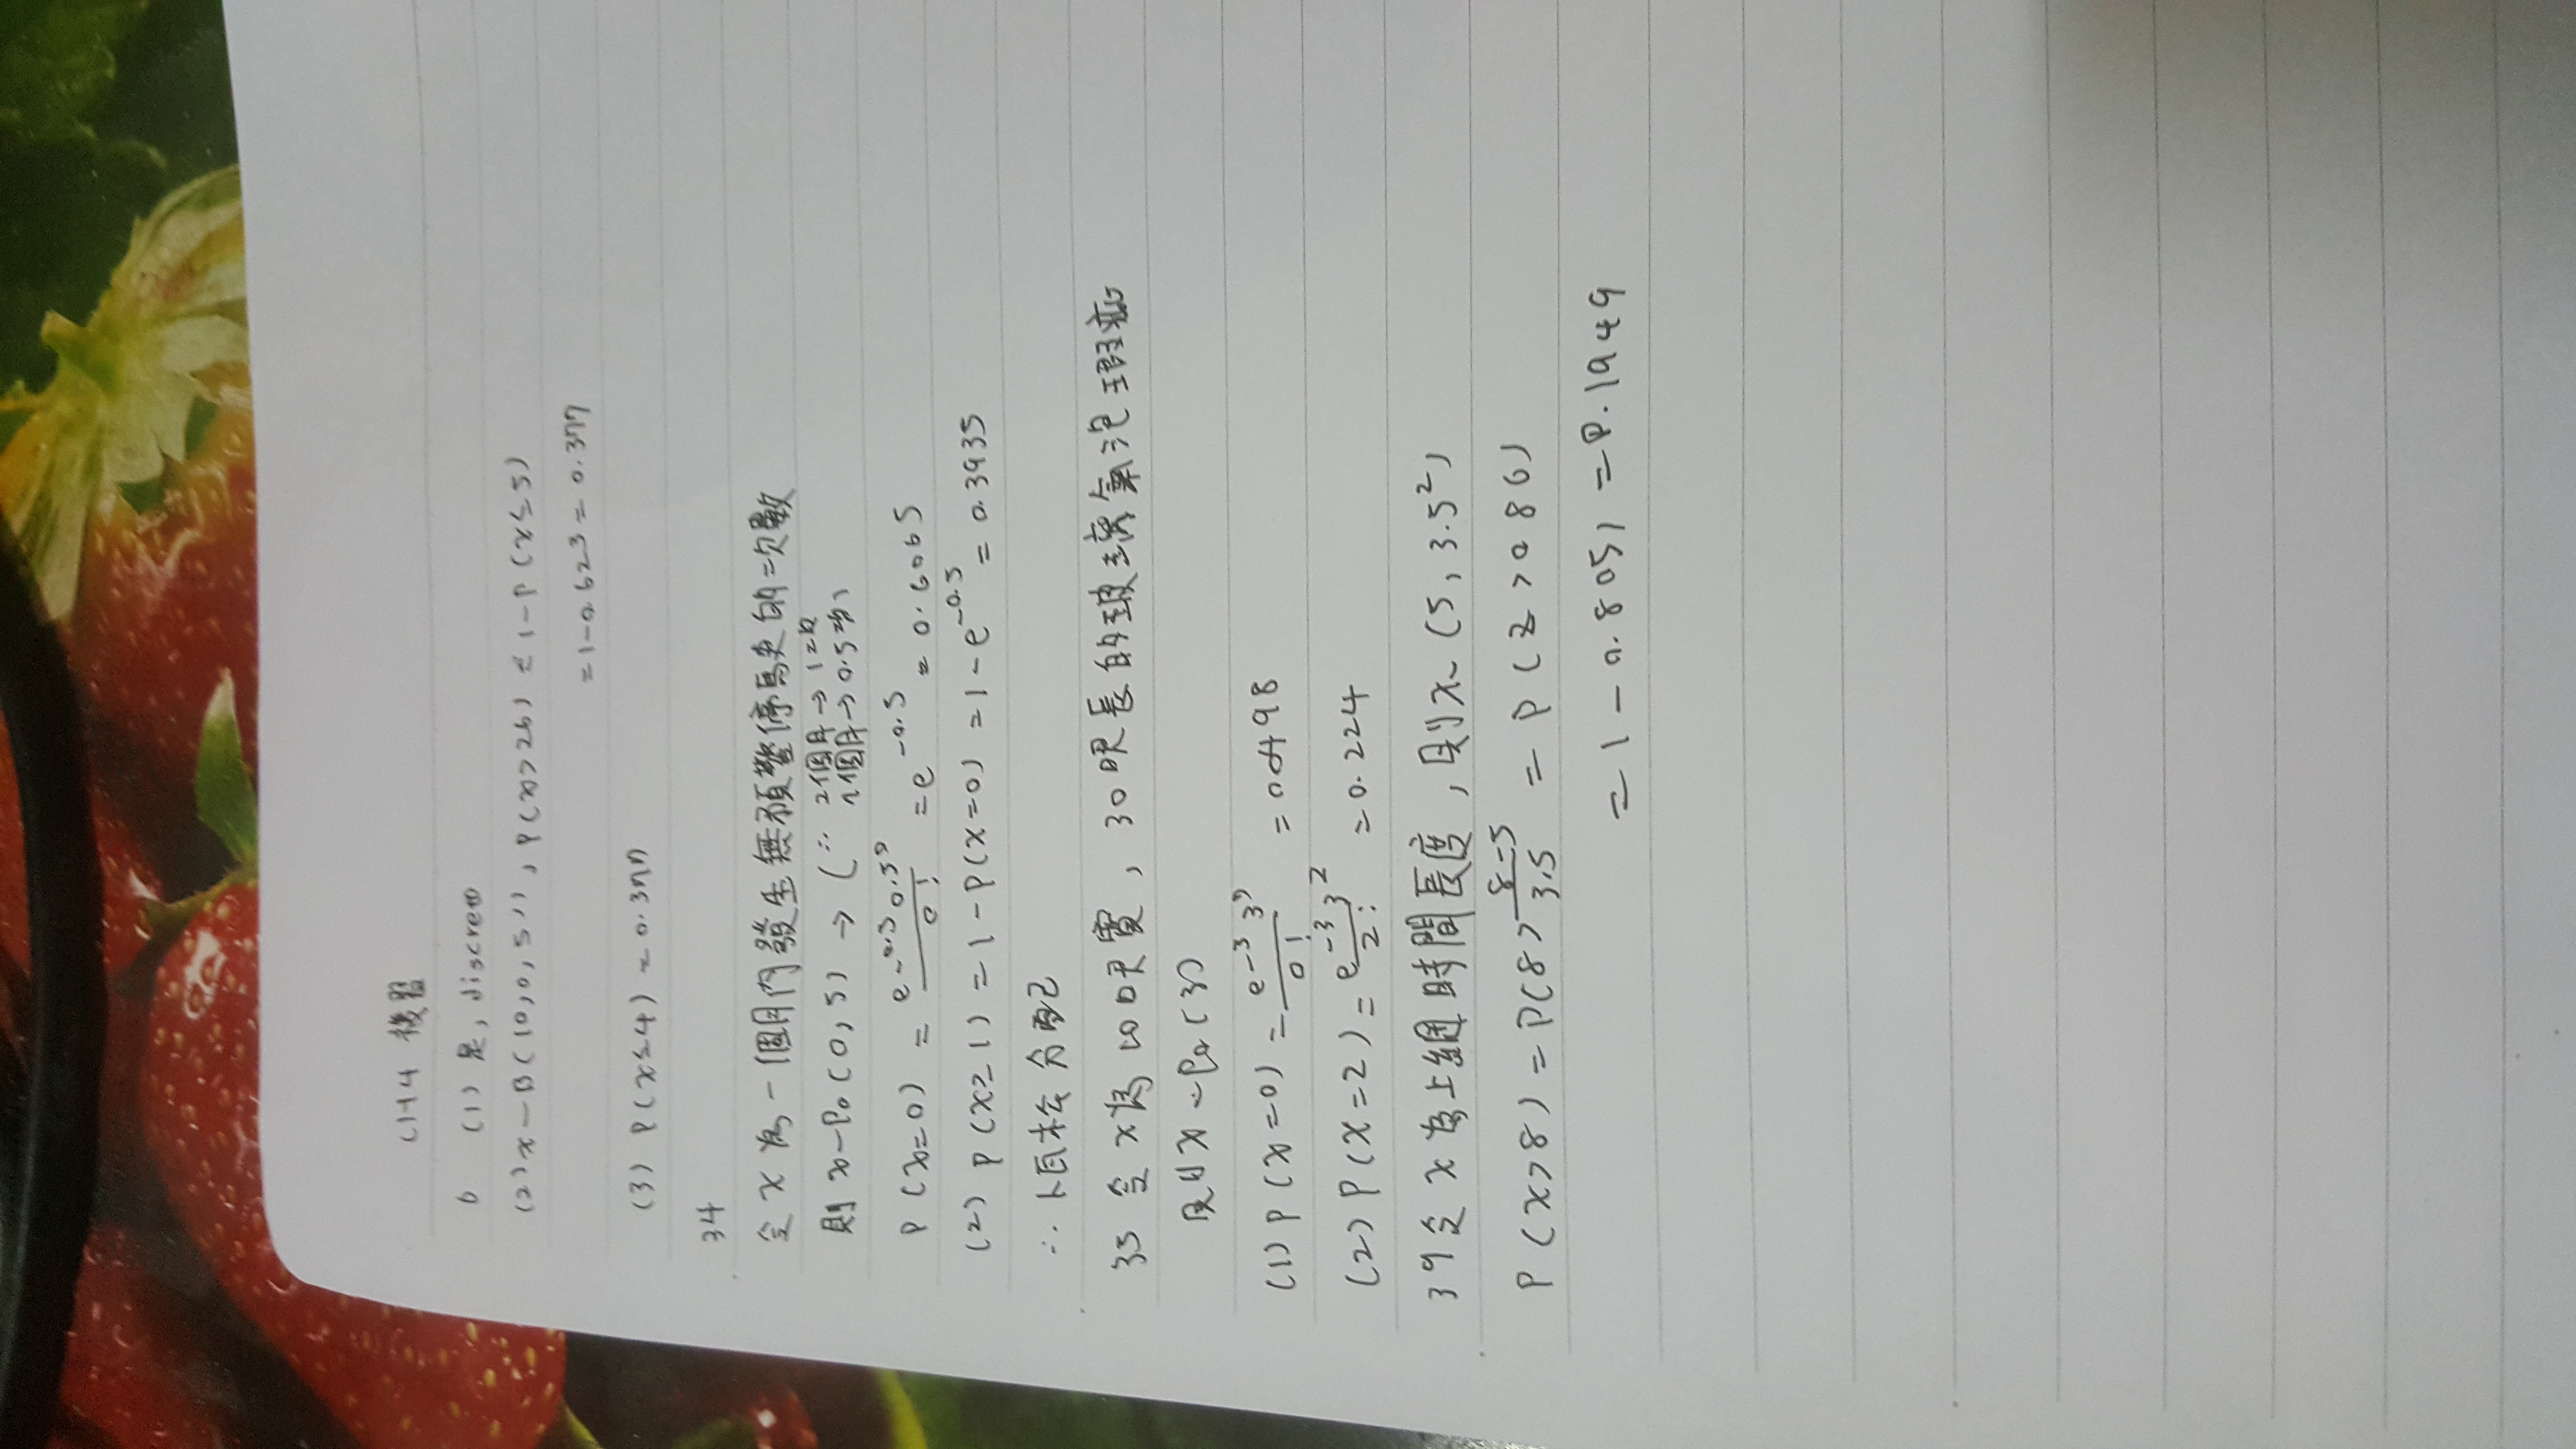 CH4 複習
6 (1) 是, discrete
(2) x~B(10,0,5), P(x>26) = 1-P(x≤5)
=1-0.623=0.377
(3) P(x≤4)=0.377
34
令x為一個月內發生無預警停駛的次數
則x~Po(0,5) → (∵ 2個月→1次
1個月→0.5次)
P(x=0) = e^-0.5 0.5^0 / 0! = e^-0.5 = 0.6065
(2) P(x≥1) = 1-P(x=0) = 1-e^-0.5 = 0.3935
∴ 卜瓦松分配
35 令x為10呎寬, 30呎長的玻璃氣泡瑕疵
則x~Po(3)
(1) P(x=0) = e^-3 3^0 / 0! = 0.0498
(2) P(x=2) = e^-3 3^2 / 2! = 0.224
39 令x為上網時間長度, 則x~(5, 3.5²)
P(x>8) = P(8> 8-5 / 3.5 = P(z>0.86)
=1-0.8051=0.1949